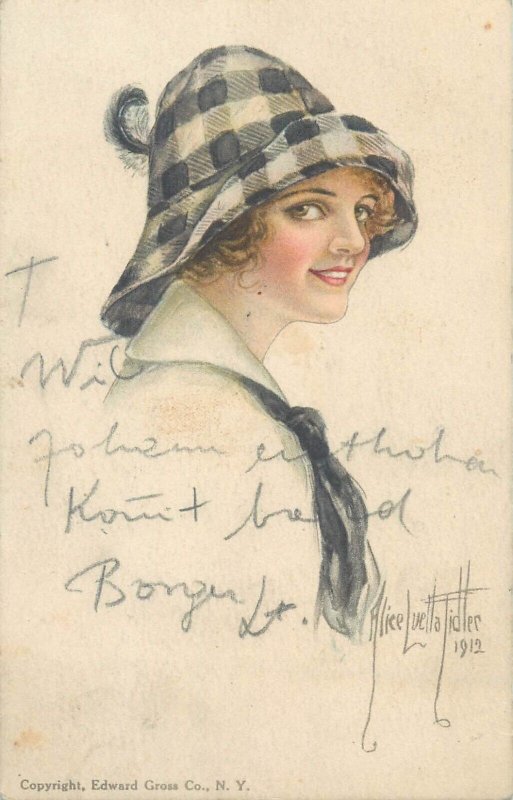 T
Wil
Johann
Komt bald
Lt.
Alice Luella Fidler
1912
Copyright, Edward Gross Co., N. Y.